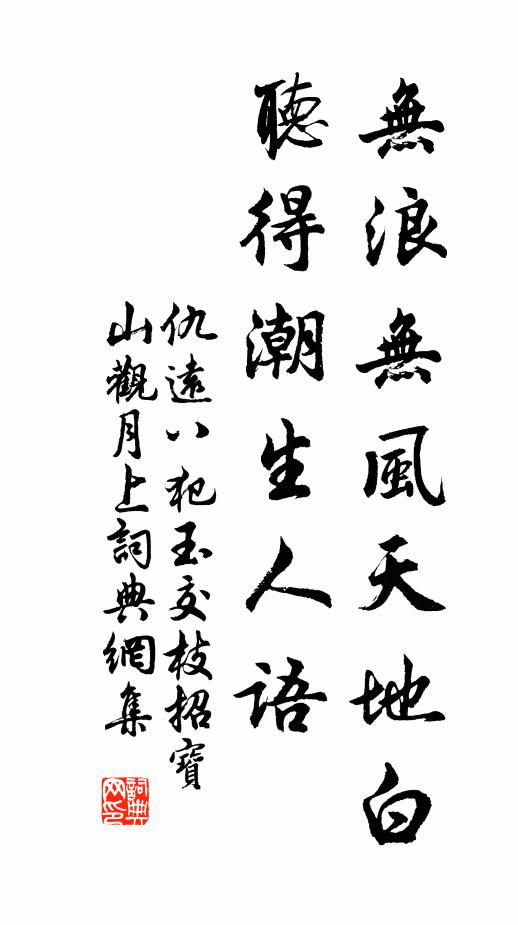 無浪無風天地白
聽得潮生人語
仇遠八犯玉交枝招寶
山觀月上詞典網集
詞典網印